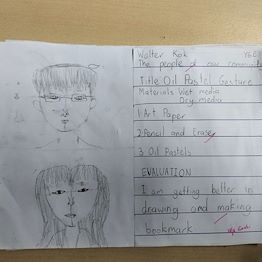 Walter Rok Y6E
The people of our community
Title Oil Pastel Gesture
Materials Wet media
Dry media
1 Art Paper
2 Pencil and Eraser
3 Oil Pastels
EVALUATION
I am getting better in
drawing and making
bookmark